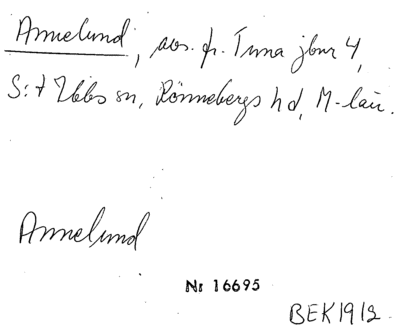 Annelund, avs. fr. Tuna jbnr 4,
S:t Ibbs sn, Rönnebergs hd, M-län.
Annelund
Nr 16695
BEK 1912